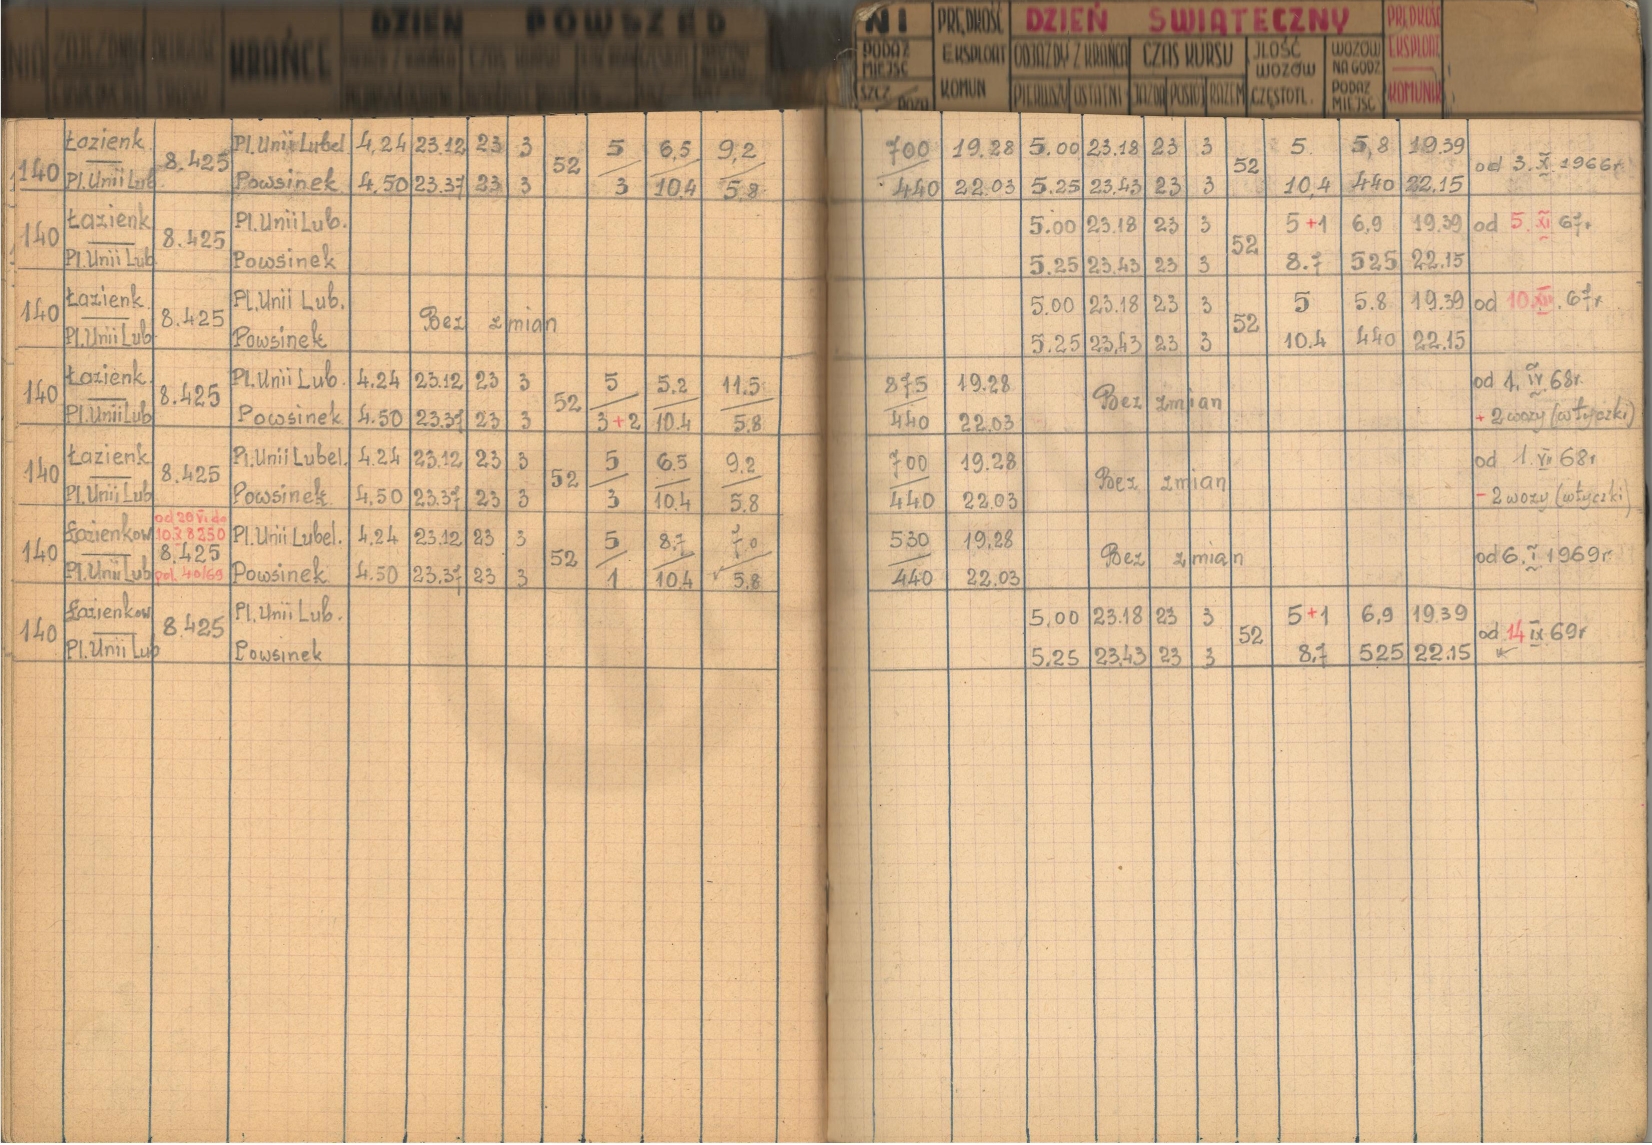 DZIEŃ POWSZED NI PRĘDKOŚĆ DZIEŃ ŚWIĄTECZNY PRĘDKOŚĆ
KRAŃCE PODAŻ MIEJSC EKSPLOAT ODJAZDY Z KRAŃCA CZAS KURSU JLOŚĆ WOZÓW WOZÓW NA GODZ EKSPLOAT
SZCZ KOMUN PIERWSZY OSTATNI JAZDA POSTÓJ RAZEM CZĘSTOTL. PODAŻ MIEJSC KOMUNIK
Łazienk. Pl. Unii Lubel 4,24 23.12 23 3 5 6,5 9,2 700 19.28 5.00 23.18 23 3 5. 5,8 19.39
140 8.425 52 52 od 3.X 1966r
Pl. Unii Lub. Powsinek 4,50 23.37 23 3 3 10.4 5.8 440 22.03 5.25 23.43 23 3 10,4 440 22.15
Łazienk Pl. Unii Lub. 5.00 23.18 23 3 5+1 6,9 19.39 od 5.XI 67r
140 8.425 52
Pl. Unii Lub Powsinek 5.25 23.43 23 3 8.7 525 22.15
Łazienk. Pl. Unii Lub. 5.00 23.18 23 3 5 5.8 19.39 od 10.XII.67r
140 8.425 Bez zmian 52
Pl. Unii Lub. Powsinek 5.25 23,43 23 3 10.4 440 22.15
Łazienk. Pl. Unii Lub. 4.24 23.12 23 3 5 5.2 11.5 875 19.28 od 1.IV.68r.
140 8.425 52 Bez zmian
Pl. Unii Lub Powsinek 4.50 23.37 23 3 3+2 10.4 5.8 440 22.03 + 2 wozy (wtyczki)
Łazienk Pl. Unii Lubel. 4.24 23.12 23 3 5 6.5 9.2 700 19.28 od 1.VII 68r
140 8.425 52 Bez zmian
Pl. Unii Lub Powsinek 4,50 23.37 23 3 3 10.4 5.8 440 22.03 - 2 wozy (wtyczki)
od 20 VI do
Łazienkow 10.X 8250 Pl. Unii Lubel. 4,24 23.12 23 3 5 8,7 7.0 530 19,28
140 8.425 52 Bez zmian od 6.I 1969r
Pl. Unii Lub pol. 40/69 Powsinek 4.50 23.37 23 3 1 10.4 5.8 440 22.03
Łazienkow Pl. Unii Lub. 5,00 23.18 23 3 5+1 6,9 19.39
140 8.425 52 od 14 IX 69r
Pl. Unii Lub Powsinek 5,25 23,43 23 3 8,7 525 22.15